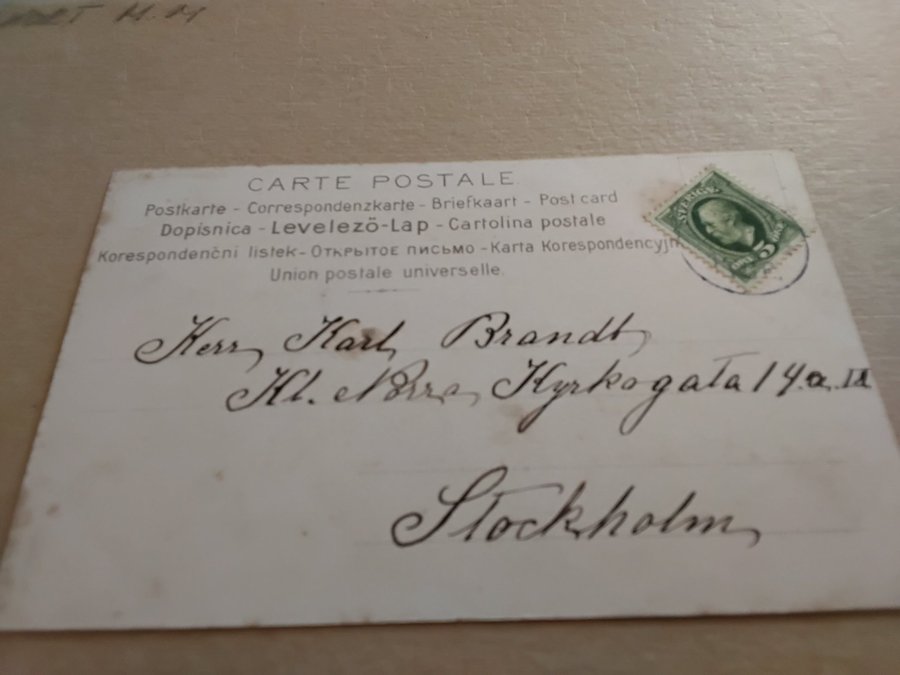 CARTE POSTALE
Postkarte - Correspondenzkarte - Briefkaart - Post card
Dopisnica - Levelező-Lap - Cartolina postale
Korespondenční listek - Открытое письмо - Karta Korespondencyjn
Union postale universelle.
SVERIGE
5
Herr Karl Brandt
Kl. Norra Kyrkogata 14.a. III
Stockholm